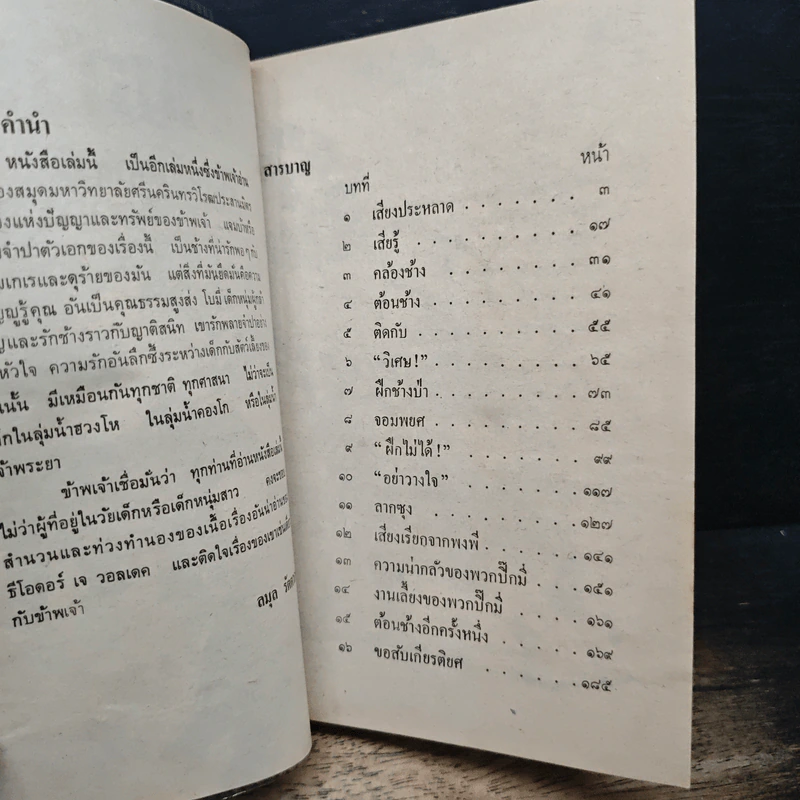 คำนำ
หนังสือเล่มนี้ เป็นอีกเล่มหนึ่งซึ่งข้าพเจ้าอ่าน
องสมุดมหาวิทยาลัยศรีนครินทรวิโรฒประสานมิตร
องแห่งปัญญาและทรัพย์ของข้าพเจ้า
งจำปาตัวเอกของเรื่องนี้ เป็นช้างที่น่ารักพอๆกับ
มเกเรและดุร้ายของมัน แต่สิ่งที่มันยึดมั่นคือความ
ญญูรู้คุณ อันเป็นคุณธรรมสูงส่ง โบมี่ เด็กหนุ่มผู้กล้า
ญและรักช้างราวกับญาติสนิท เขารักพลายจำปาอย่าง
หัวใจ ความรักอันลึกซึ้งระหว่างเด็กกับสัตว์เลี้ยงของ
นั้น มีเหมือนกันทุกชาติ ทุกศาสนา ไม่ว่าจะเป็น
ด็กในลุ่มน้ำฮวงโห ในลุ่มน้ำคองโก หรือในลุ่มน้ำ
จ้าพระยา
ข้าพเจ้าเชื่อมั่นว่า ทุกท่านที่อ่านหนังสือเล่มนี้
ไม่ว่าผู้ที่อยู่ในวัยเด็กหรือเด็กหนุ่มสาว คงจะชอบ
สำนวนและท่วงทำนองของเนื้อเรื่องอันน่าอ่านของ
ธีโอดอร์ เจ วอลเดค และติดใจเรื่องของเขาเช่นเดียว
กับข้าพเจ้า
ลมุล
สารบาญ
บทที่ หน้า
๑ เสียงประหลาด . . . . . . ๓
๒ เสียรู้ . . . . . . . . ๑๗
๓ คล้องช้าง . . . . . . . ๓๑
๔ ต้อนช้าง . . . . . . . ๔๑
๕ ติดกับ . . . . . . . . ๕๕
๖ “วิเศษ!” . . . . . . . ๖๕
๗ ฝึกช้างป่า . . . . . . . ๗๓
๘ จอมพยศ . . . . . . . ๘๕
๙ “ฝึกไม่ได้!” . . . . . . ๙๙
๑๐ “อย่าวางใจ” . . . . . . ๑๑๗
๑๑ ลากซุง . . . . . . . . ๑๒๗
๑๒ เสียงเรียกจากพงพี . . . . . ๑๔๑
๑๓ ความน่ากลัวของพวกปิ๊กมี่ . . . . ๑๕๑
๑๔ งานเลี้ยงของพวกปิ๊กมี่ . . . . ๑๖๑
๑๕ ต้อนช้างอีกครั้งหนึ่ง . . . . . ๑๖๙
๑๖ ขอสับเกียรติยศ . . . . . . ๑๘๕